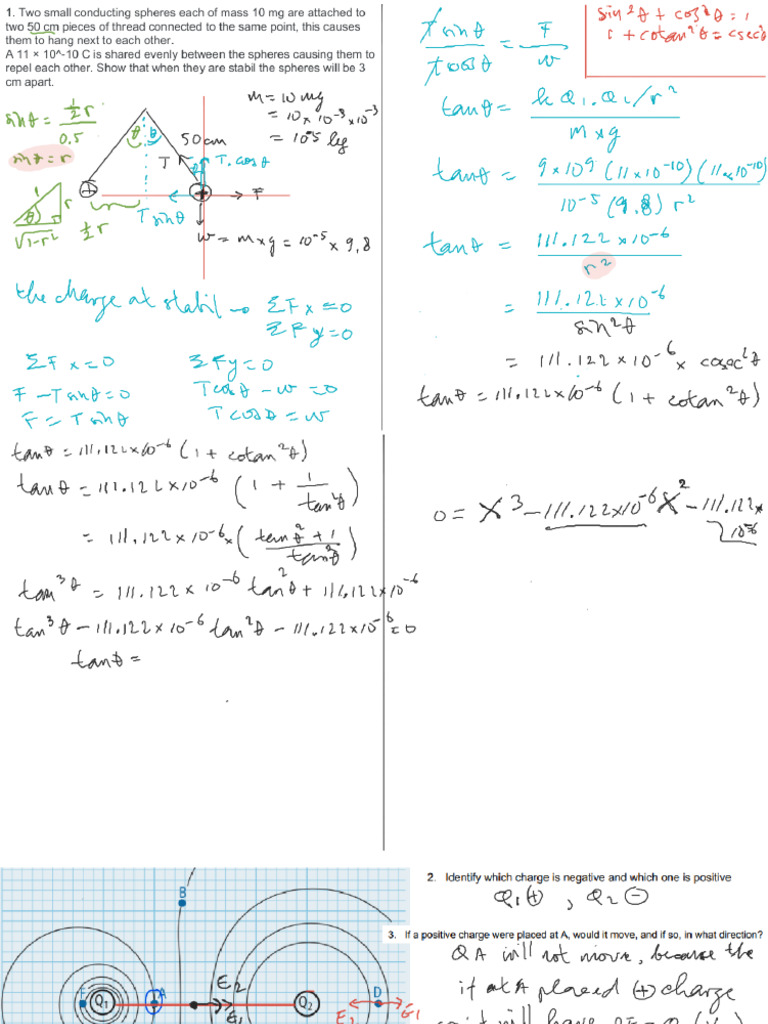 1. Two small conducting spheres each of mass 10 mg are attached to
two 50 cm pieces of thread connected to the same point, this causes
them to hang next to each other.
A 11 × 10^-10 C is shared evenly between the spheres causing them to
repel each other. Show that when they are stabil the spheres will be 3
cm apart.
sinθ = ½r / 0.5
sinθ = r
1
r
θ
√1-r²
½r
θ θ
50cm
m = 10 mg
= 10 × 10⁻³ × 10⁻³
= 10⁻⁵ kg
T
T.cosθ
+
+
F
Tsinθ
w = m×g = 10⁻⁵ × 9,8
the charge at stabil → ΣFx=0
ΣFy=0
ΣFx=0
F - Tsinθ=0
F = Tsinθ
ΣFy=0
Tcosθ - w =0
Tcosθ = w
Tsinθ / Tcosθ = F / w
sin²θ + cos²θ = 1
1 + cotan²θ = cosec²θ
tanθ = kQ₁.Q₂/r² / m×g
tanθ = 9×10⁹ (11×10⁻¹⁰)(11×10⁻¹⁰) / 10⁻⁵ (9,8) r²
tanθ = 111.122×10⁻⁶ / r²
= 111.122×10⁻⁶ / sin²θ
= 111.122×10⁻⁶ × cosec²θ
tanθ = 111.122×10⁻⁶ (1 + cotan²θ)
tanθ = 111.122×10⁻⁶ (1 + cotan²θ)
tanθ = 111.122×10⁻⁶ (1 + 1/tan²θ)
= 111.122×10⁻⁶ × (tan²θ + 1 / tan²θ)
tan³θ = 111.122×10⁻⁶ tan²θ + 111.122×10⁻⁶
tan³θ - 111.122×10⁻⁶ tan²θ - 111.122×10⁻⁶ = 0
tanθ =
0 = X³ - 111.122×10⁻⁶ X² - 111.122×10⁻⁶
B
A
Q₁
E₂
E₁
Q₂
D
E₂
E₁
2. Identify which charge is negative and which one is positive
Q₁⊕ , Q₂⊖
3. If a positive charge were placed at A, would it move, and if so, in what direction?
QA will not move, because the
if at A placed ⊕ charge
will have